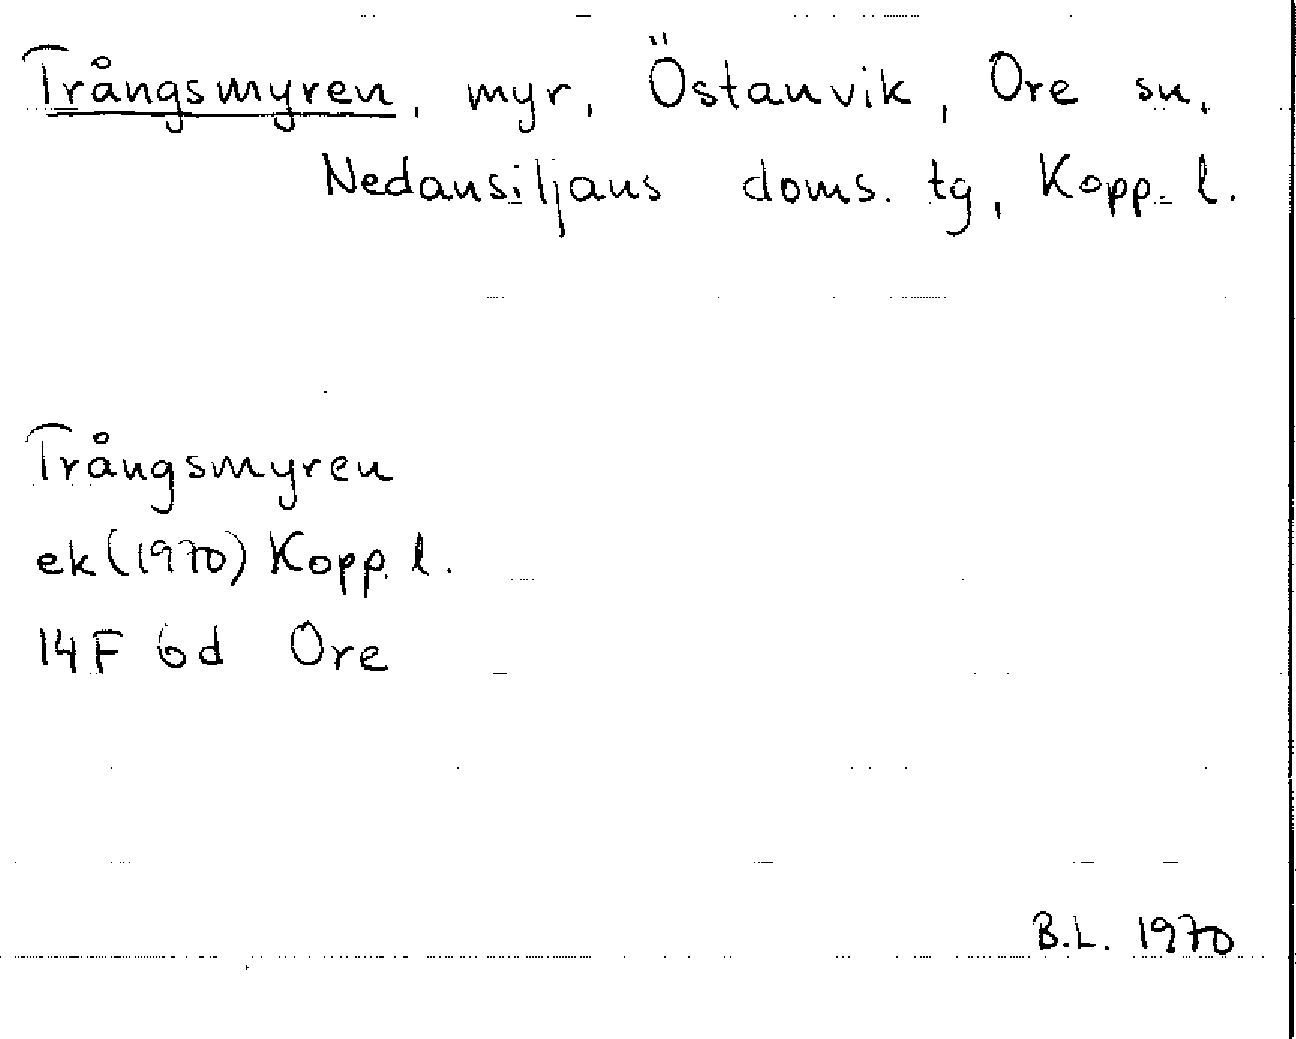 Trångsmyren, myr, Östanvik, Ore sn,
Nedansiljans doms. tg, Kopp. l.
Trångsmyren
ek (1970) Kopp. l.
14F 6d Ore
B.L. 1970